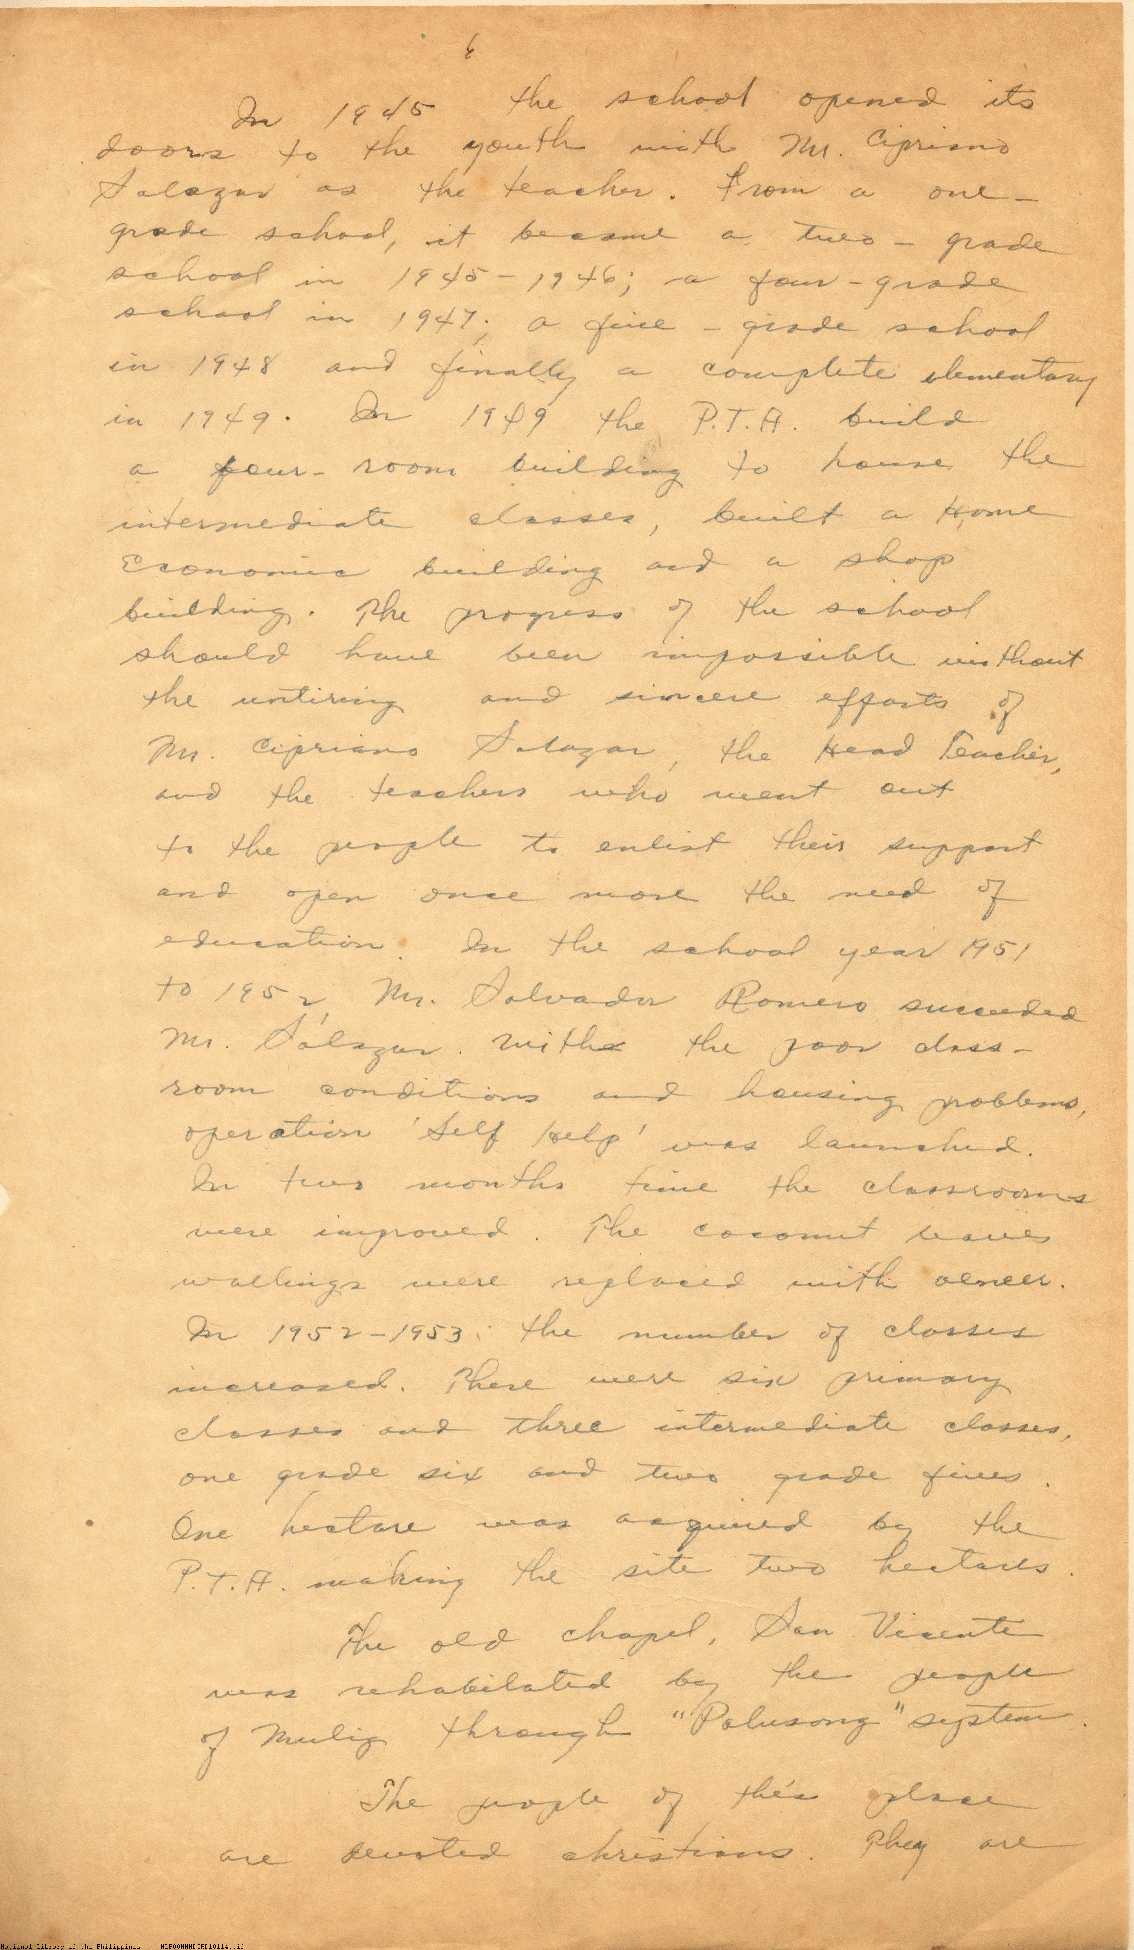 6
In 1945 the school opened its
doors to the youth with Mr. Cipriano
Salazar as the teacher. From a one-
grade school, it became a two-grade
school in 1945-1946; a four-grade
school in 1947; a five-grade school
in 1948 and finally a complete elementary
in 1949. In 1949 the P.T.A. build
a four-room building to house the
intermediate classes, built a Home
Economic building and a shop
building. The progress of the school
should have been impossible without
the untiring and sincere efforts of
Mr. Cipriano Salazar, the Head Teacher,
and the teachers who went out
to the people to enlist their support
and open once more the need of
education. In the school year 1951
to 1952, Mr. Salvador Romero succeeded
Mr. Salazar. With the poor class-
room conditions and housing problems,
operation 'Self Help' was launched.
In two months time the classrooms
were improved. The coconut leaves
wallings were replaced with veneer.
In 1952-1953, the number of classes
increased. There were six primary
classes and three intermediate classes,
one grade six and two grade fives.
One hectare was acquired by the
P.T.A. making the site two hectares.
The old chapel, San Vicente
was rehabilated by the people
of Mulig through "Palusong" system.
The people of this place
are devoted christians. They are
National Library of the Philippines